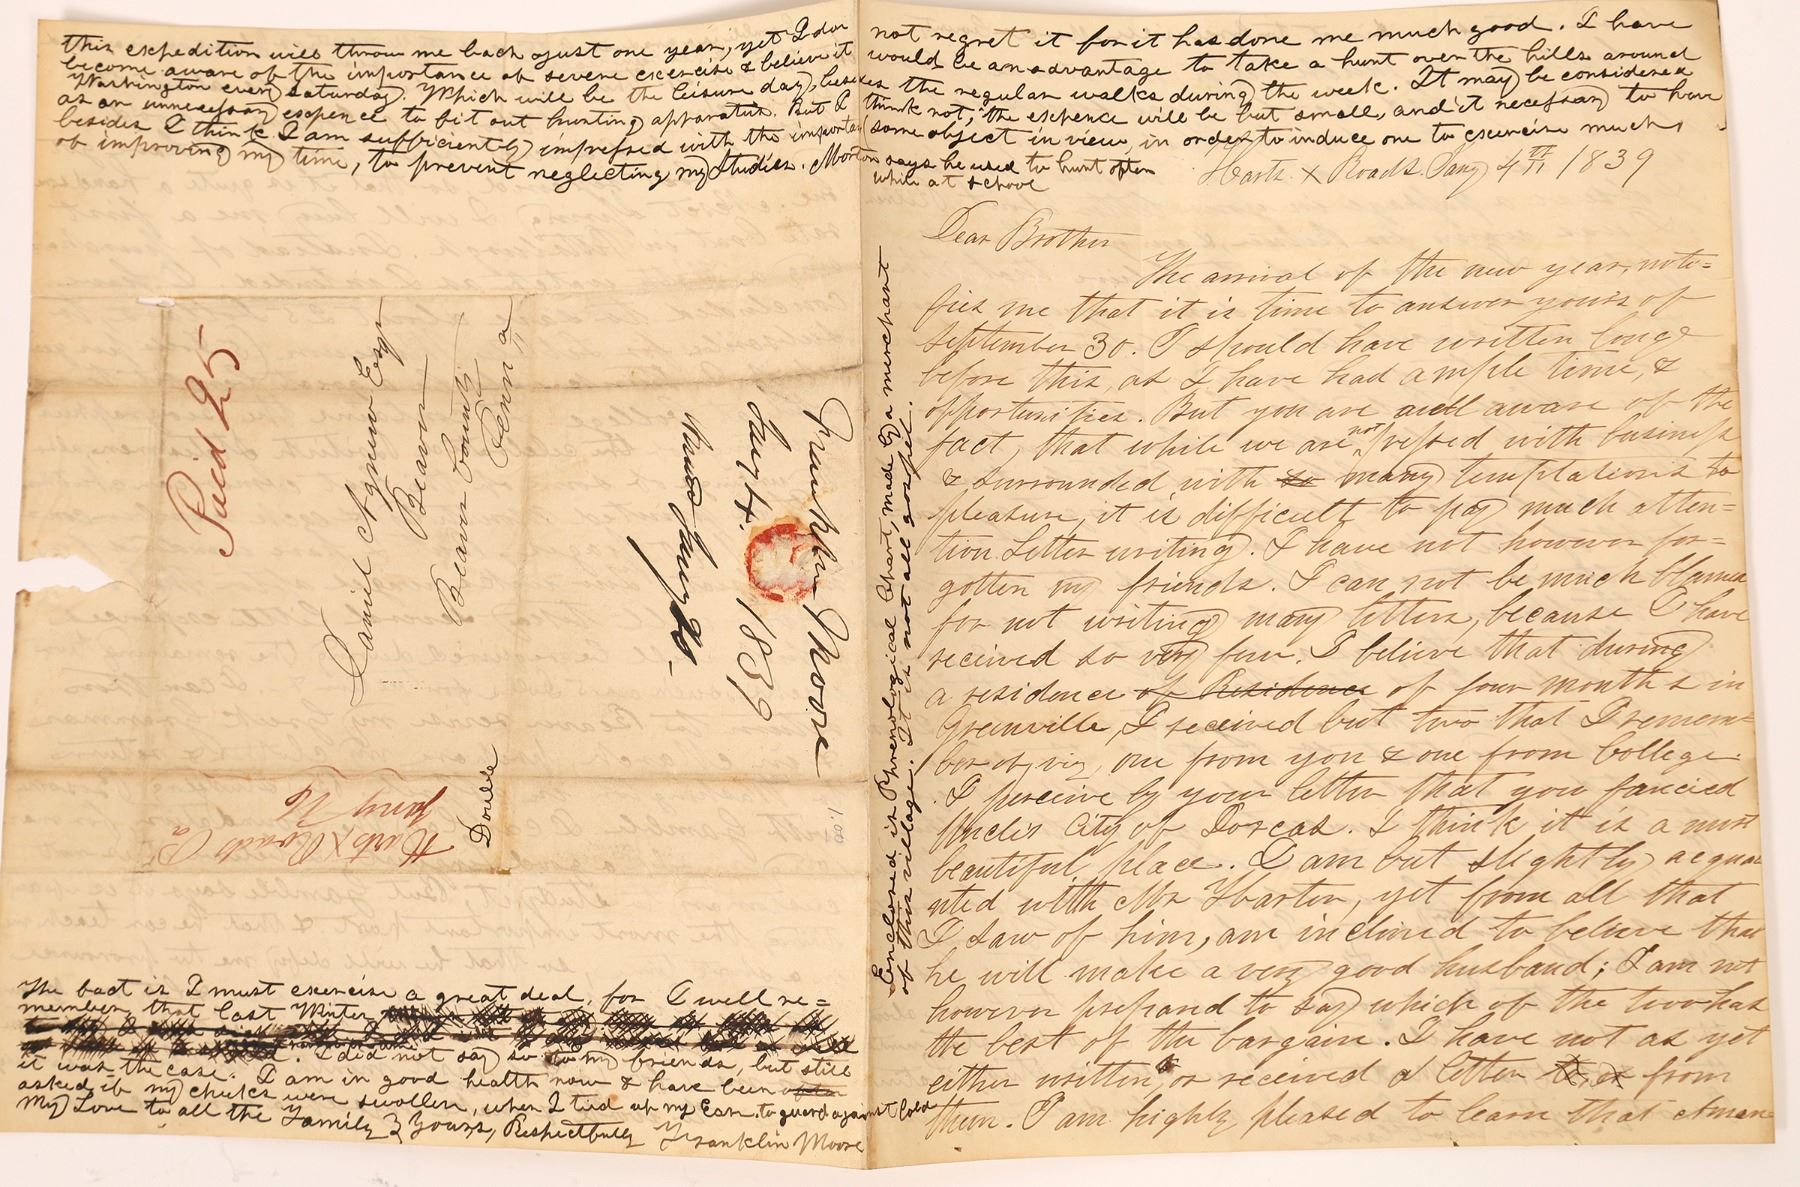 this expedition will throw me back just one year, yet I do
not regret it for it has done me much good. I have
become aware of the importance of severe excercise & believe it
would be an advantage to take a hunt over the hills around
Washington every Saturday. Which will be the leisure day, besides
the regular walks during the week. It may be considered
as an unnecessary expence to fit out hunting apparatus. But I
think not, the expence will be but small, and it necessary to have
besides I think I am sufficiently impressed with the importan
some object in view, in order to induce one to excercise much,
of improving my time, to prevent neglecting my Studies. Morton
says he used to hunt often
while at school
Harts X Roads Jany 4th 1839
Dear Brother
The arrival of the new year, noti=
fies me that it is time to answer yours of
September 30. I should have written long
before this, as I have had ample time, &
opportunities. But you are well aware of the
fact, that while we are not pressed with business
& surrounded with so many temptations to
pleasure, it is difficult to pay much atten=
tion Letter writing. I have not however for=
gotten my friends. I can not be much blamed
for not writing many letters, because I have
received so very few. I believe that during
a residence of Residence of four months in
Greenville, I received but two that I remem=
ber of, viz, one from you & one from College.
I perceive by your letter that you fancied
Uncles City of Dorcas. I think it is a most
beautiful place. I am but slightly acquai
nted with Mr Harton, yet from all that
I saw of him, am inclined to believe that
he will make a very good husband; I am not
however prepared to say which of the two has
the best of the bargain. I have not as yet
either written, or received a letter from
them. I am highly pleased to learn that
Enclosed is Phrenological Chart, made by a merchant
of this village. It is not all gospel.
Paid 25
Daniel Agnew Esqr
Beaver
Beaver County
Penn a
Harts X Roads Pa
Jany 16
Double
Franklin Moore
Jany 4. 1839
The fact is I must excercise a great deal, for I well re=
member, that last Winter
I did not say so to my friends, but still
it was the case. I am in good health now & have been often
asked if my cheeks were swollen, when I tied up my Ears to guard against Cold
My Love to all the Family } Yours, Respectfully Franklin Moore
1.00